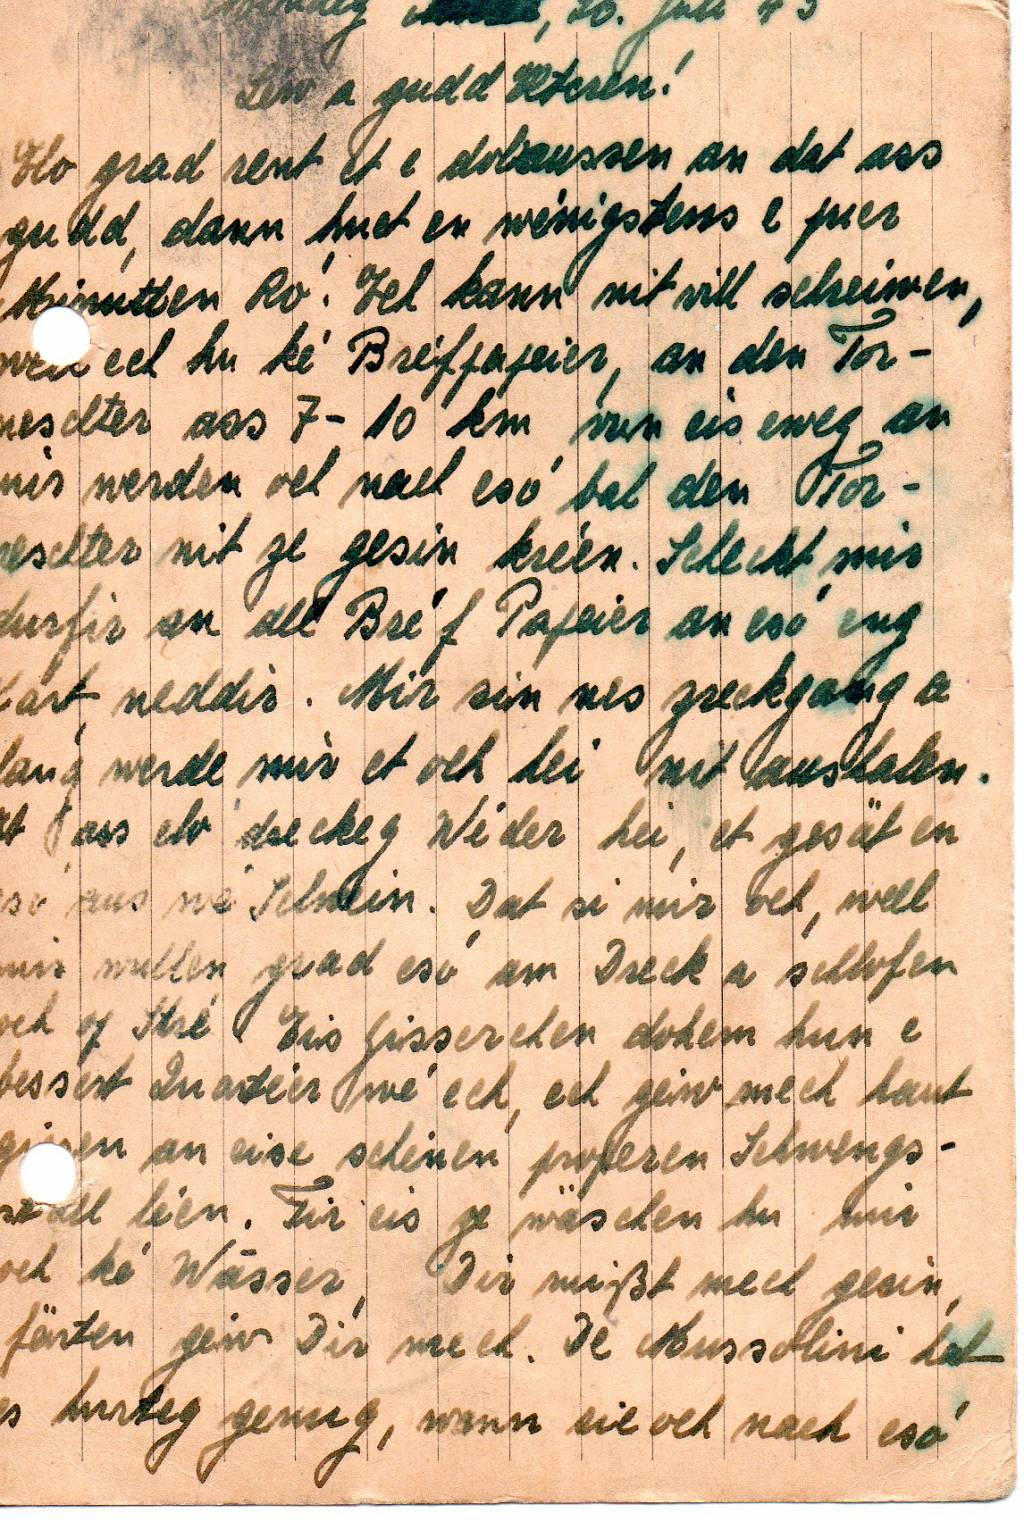 26. Juli 43
Léw a gudd Elteren!
Ho grad rent et e dobaussen an dat ass
gudd, dann huet en wénigstens e puer
Minutten Ró. Ech kann nit vill schreiwen,
ech hu ké Breifpapeier, an den Tor-
neschter ass 7-10 km vun eis eweg an
mir werden och nach esó bal den Tor-
neschter nit ze gesin kréen. Schéckt mir
durfir an all Bréf Papeier an esó eng
Kart neddir. Mir sin nes zreckgang a
lang werde mir et och hei nit aushalen.
Et ass elo dreckeg Wéder hei, et gesät en
esó aus wé Schwein. Dat si mir och, well
mir mussen grad esó am Dreck a schlofen
och op Stré. Eis Gisserchen dohem hun e
bessert Quartéier wé ech, ech geiw mech haut
giren an eise schéinen properen Schwengs-
stall léen. Fir eis ze wäschen hu mir
och ké Wässer, Dir mißt mech gesin,
färten geiw Dir mech. De Mussolini hat
es hurteg genug, wann sie och nach esó